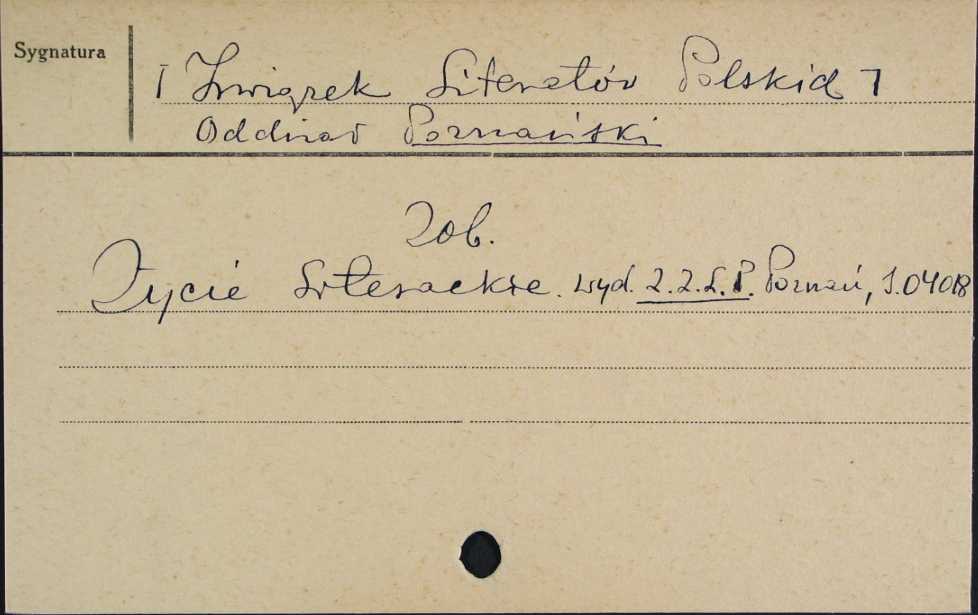 Sygnatura
[ Związek Literatów Polskich ]
Oddział Poznański
Zob.
Życie Literackie. wyd. Z.Z.L.P. Poznań, J.04018